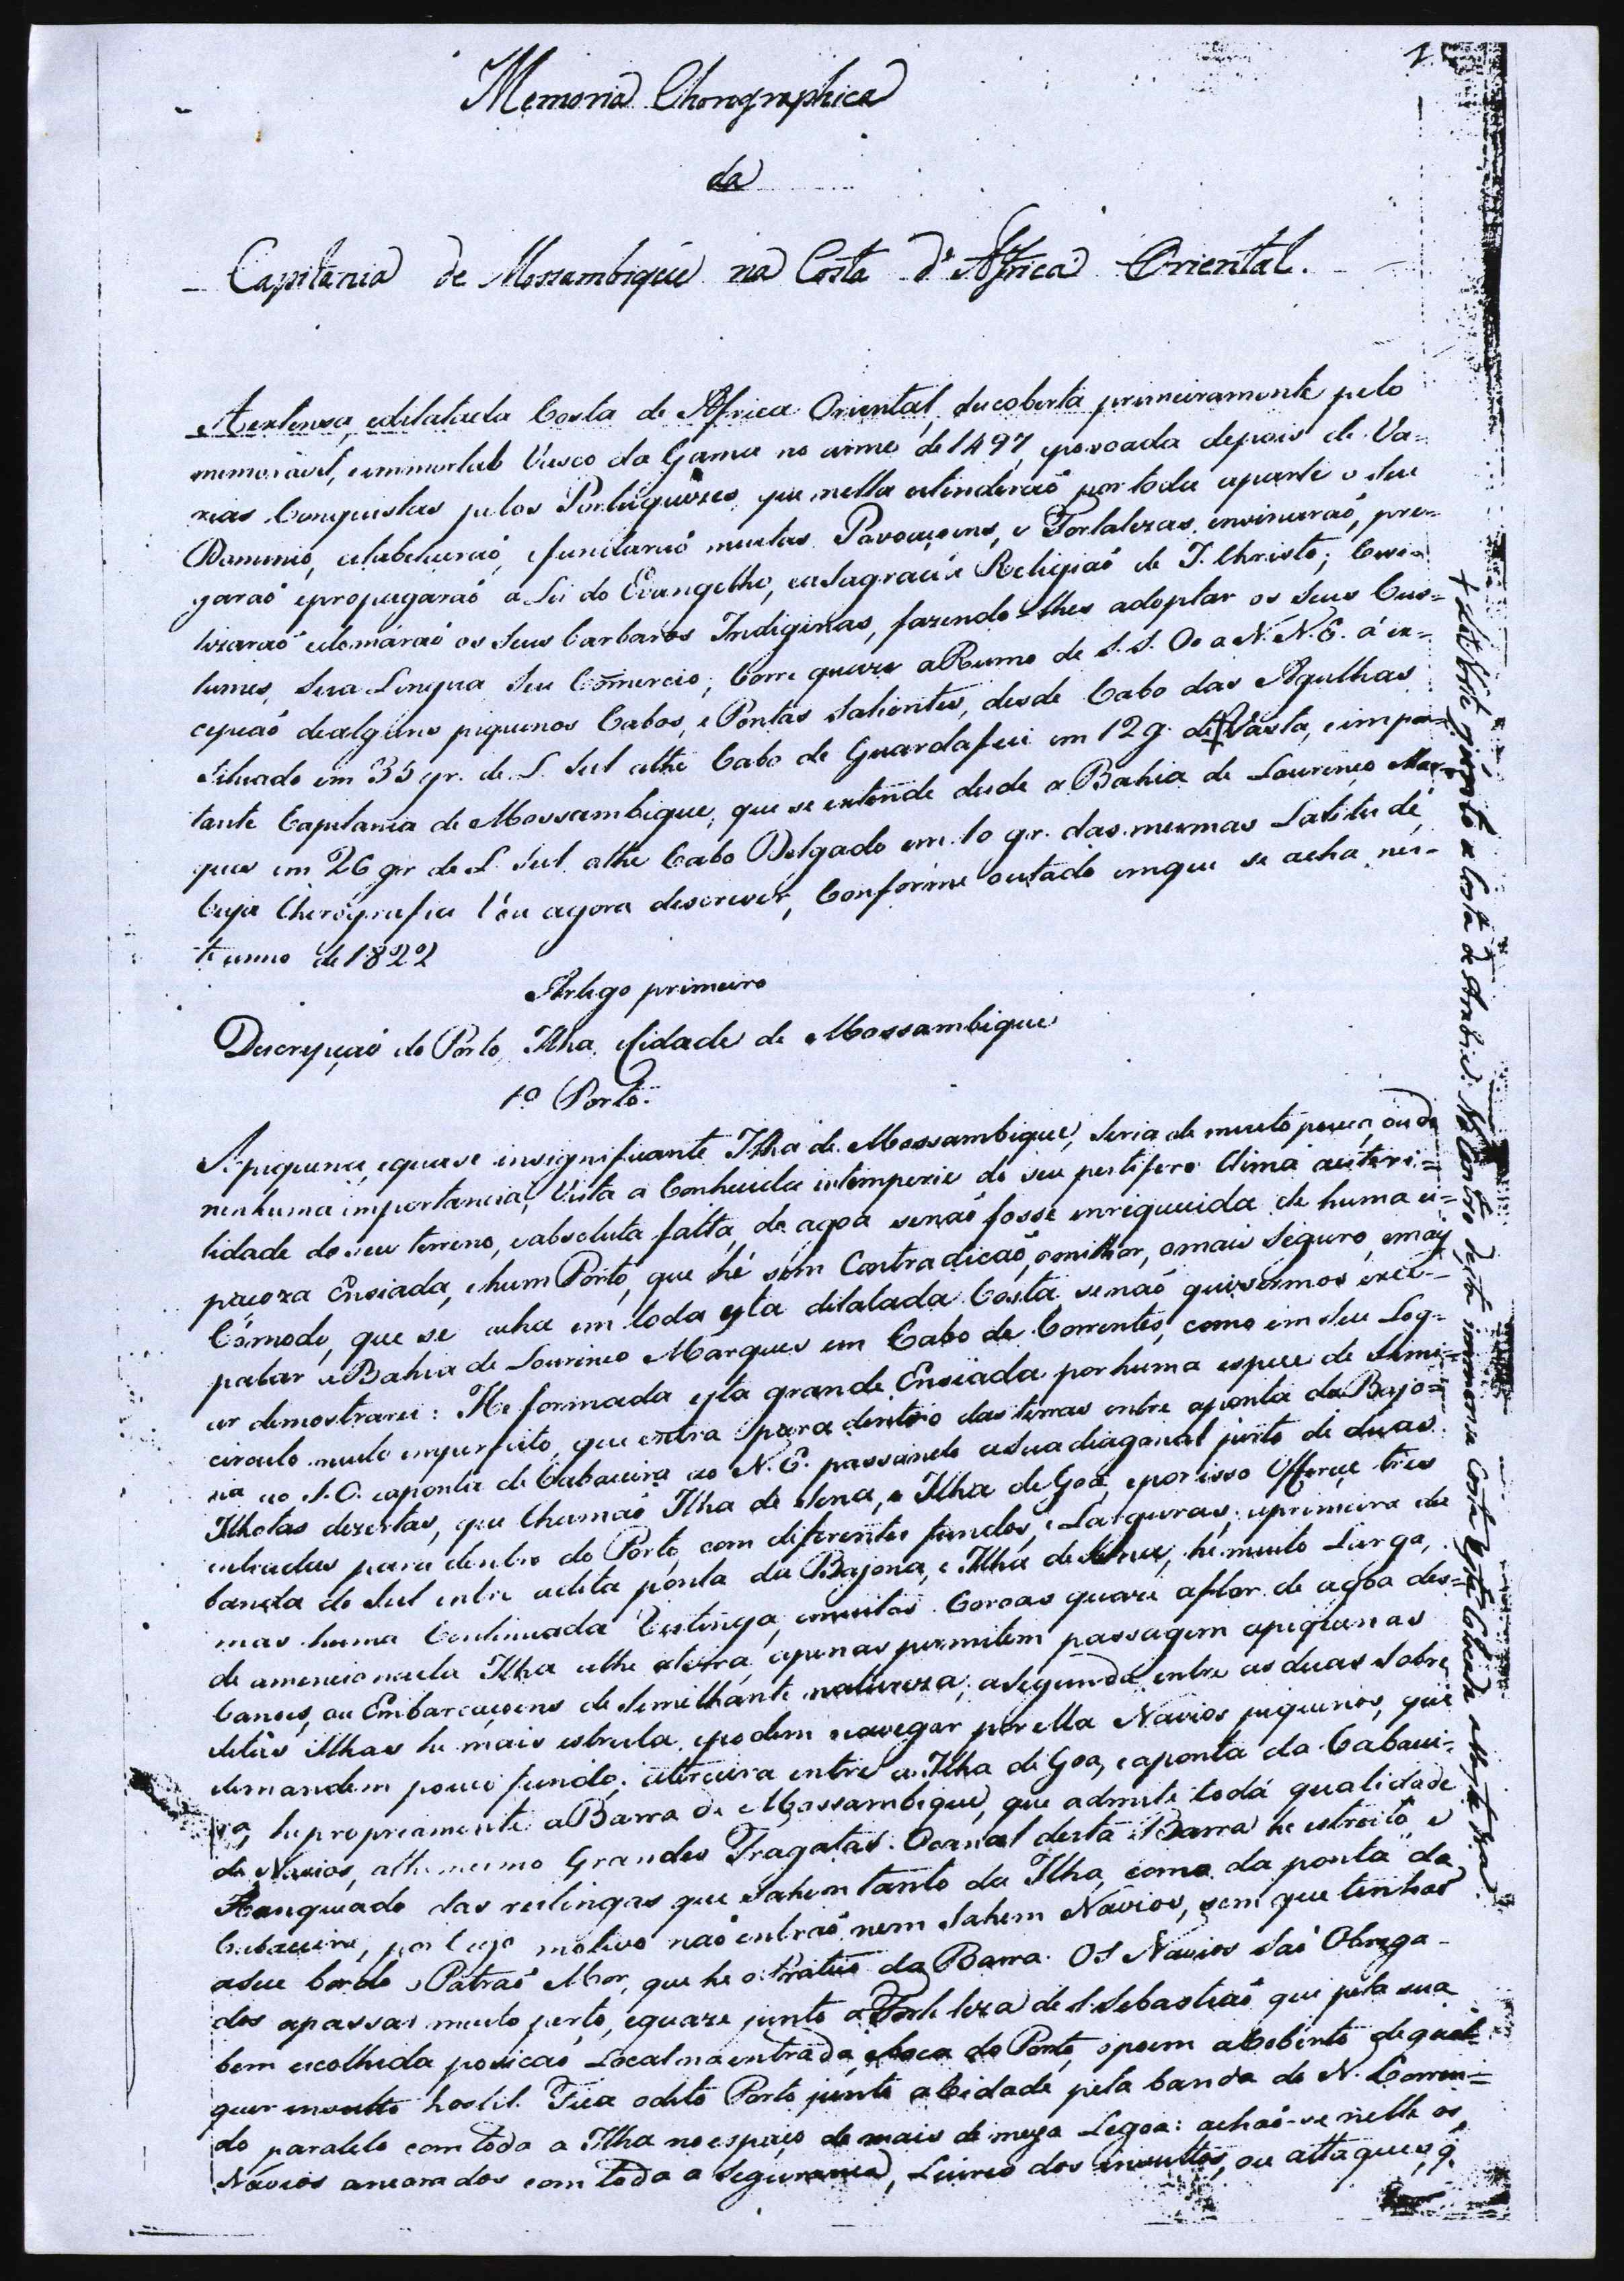 1
Memoria Chorographica
da
Capitania de Mossambique na Costa d'Africa Oriental.
A extensa, edilatada Costa de Africa Oriental, descoberta primeiramente pelo
memoravel, eimmortal Vasco da Gama no anno de 1497, epovoada depois de Va=
rias Conquistas pelos Portuguezes, que nella estenderaõ por toda aparte o seu
Dominio, estabeleceraõ, efundaraõ muitas Povoaçoens, e Fortalezas, ensinaraõ, pre=
garaõ epropagaraõ a Lei do Evangelho, easagrada Religiaõ de J. Christo; Civi=
lizaraõ edomaraõ os seus barbaros Indiginas, fazendo-lhes adoptar os seus Cus=
tumes, sua Lingua seu Comercio; Corre quaze aRumo de S.S.Oo a N.N.E. á ex=
cepçaõ dealguns piquenos Cabos, e Pontas salientes, desde Cabo das Agulhas
situado em 35 gr. de L. Sul athe Cabo de Guardafui em 12 g. de + Vasta, eimpor=
tante Capitania de Mossambique, que se extende desde a Bahia de Lourenco Mar=
ques em 26 gr de L. Sul athe Cabo Delgado em 10 gr. das mesmas Latitude,
Cuja Chorografia Vou agora descrever, Conforme oestado emque se acha nes=
te anno de 1822
Artigo primeiro
Descripçaõ do Porto, Ilha, eCidade de Mossambique
1º Porto.
A piquena, equase insignificante Ilha de Mossambique, seria de muito pouca, ou de
nenhuma importancia, Vista a Conhecida intemperie do seu pestifero Clima aesteri=
lidade do seu terreno, eabsoluta falta de agoa senaõ fosse enriquecida de huma es=
paçoza Ensiada, ehum Porto, que hé sem Contradicaõ, omilhor, omais seguro, emais
Cómodo, que se acha em toda esta dilatada Costa senaõ quisermos exce=
ptuar a Bahia de Lourenco Marques em Cabo de Correntes, como em seu Log=
ar demostrarei: He formada esta grande Ensiada por huma especie de Semi=
circulo muito imperfeito, que entra para dentro das terras entre aponta da Bajo=
na ao S.O. eaponta de Cabaceira ao N.E. passando asua diagonal junto de duas
Ilhotas dezertas, que Chamaõ Ilha de Sena, e Ilha de Goa, epor isso Offerece tres
entradas para dentro do Porto com diferentes fundos, e Larguras; aprimeira da
banda do Sul entre adita ponta da Bajona, e Ilha de Sena, he muito Larga,
mas huma Continuada restinga, emuitas Coroas quaze aflor de agoa des=
de amencionada Ilha athe aterra, apenas permitem passagem apiquenas
Canoas, ou Embarcaçoens de Semilhante natureza; asegunda entre as duas sobre
ditas Ilhas he mais estreita, epodem navegar por ella Navios piquenos, que
demandem pouco fundo; aterceira entre a Ilha de Goa, eaponta da Cabacei=
ra, he propriamente aBarra de Mossambique, que admite toda qualidade
de Navios, athe mesmo Grandes Fragatas. Ocanal desta Barra he estreito e
flanqueado das restingas que sahem tanto da Ilha, como da ponta da
Cabaceira, por Cujo motivo naõ entraõ nem sahem Navios, sem que tenhaõ
aseu bordo o Patraõ Mor, que he o Pratico da Barra. Os Navios saõ Obriga=
dos apassar muito perto, equaze junto aFortaleza de S. Sebastiaõ que pela sua
bem escolhida posicaõ Local na entrada, eboca do Porto, opoem aCoberto dequal=
quer insulto hostil. Fica odito Porto junto aCidade pela banda do N. Corren=
do paralelo com toda a Ilha no espaço de mais de meya Legoa: achaõ-se nelle os
Navios ancorados com toda a seguranca, Livres dos insultos, ou attaques, q.
+ Lat. Norte junto a Costa de Arabia. No Centro desta immensa Costa está Colocada